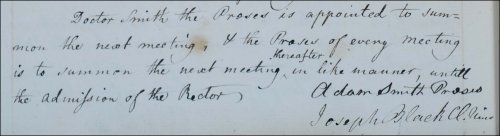 Doctor Smith the Præses is appointed to sum=
mon the next meeting, & the Præses of every meeting
thereafter
is to summon the next meeting in like manner, untill
the admission of the Rector
Adam Smith Præses
Joseph Black Cl.